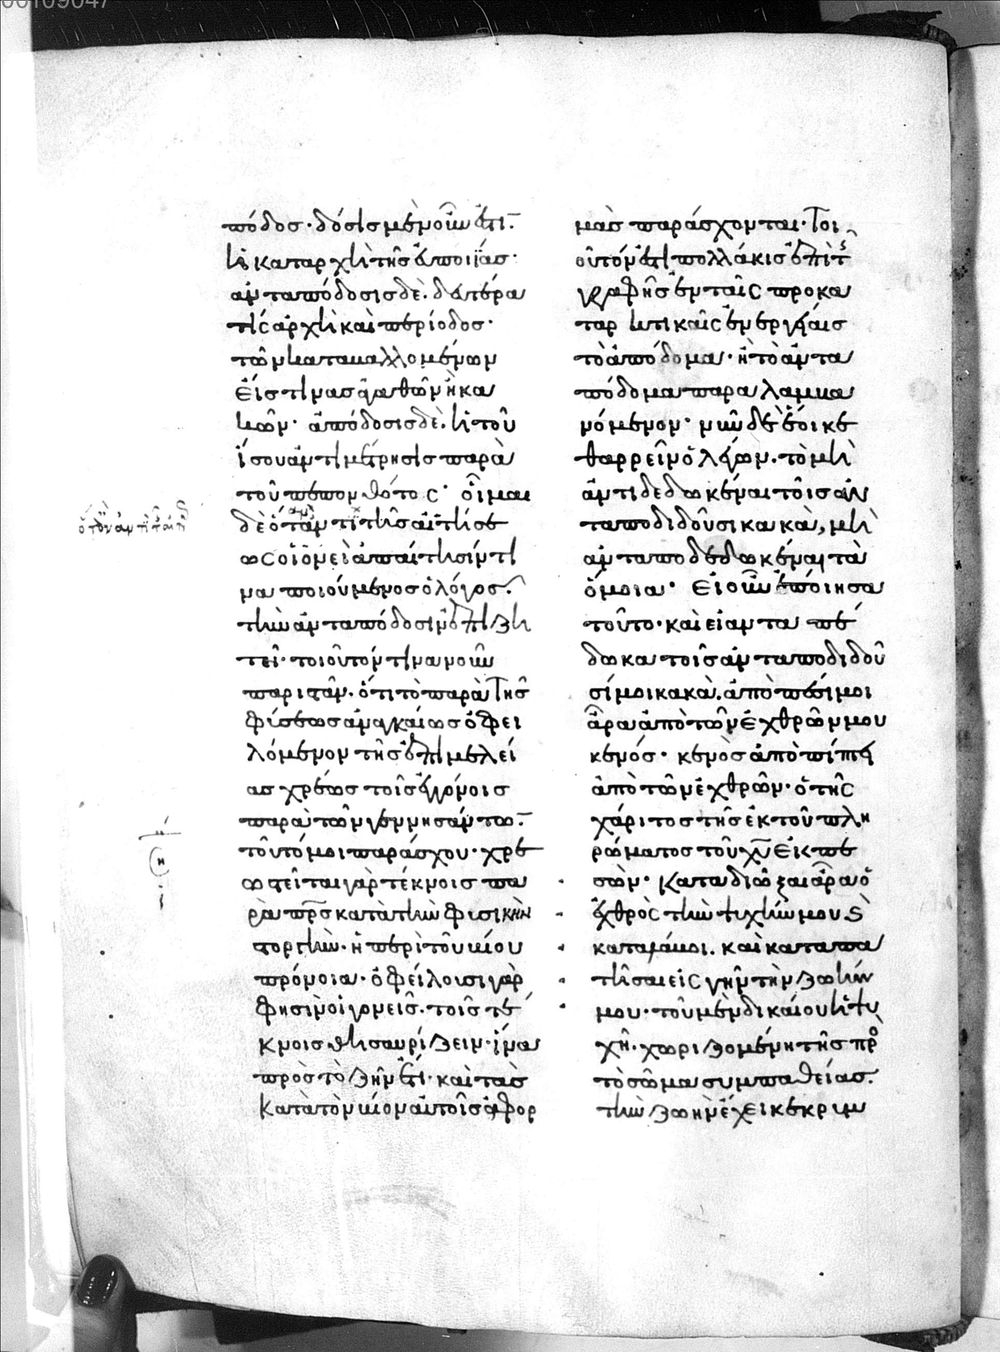 πόδοσ· δόσισ μὲν οὖν ἐστὶν
ἡ καταρχὴ τῆσ εὐποιΐασ·
ἀνταπόδοσισ δὲ. δευτέρα
τίσ ἀρχὴ καὶ περίοδοσ·
τῶν κατ
εἴσ τινασ ἀγαθῶν ἢ κα
κῶν· ἀπόδοσισ δὲ. ἡ τοῦ
ἴσου ἀντιμέτρησισ παρὰ
τοῦ πεπονθότοσ· οἶμαι
δὲ
ὡσ οἱονεὶ ἀπαίτησίν τι
να ποιούμενοσ ὁ λόγοσ.
τὴν ἀνταπόδοσιν ἐπιζη
τεῖ· τοιοῦτόν τινα νοῦν
παριστᾶν. ὅτι τὸ παρὰ τῆσ
φύσεωσ ἀναγκαίωσ ὀφει
λόμενον τῆσ ἐπιμελεί
ασ χρέωσ τοῖσ ἐγγόνοισ
παρὰ τῶν γεννησάντων.
τοῦτό μοι παράσχου· χρε
ωστεῖται γὰρ τέκνοισ πα
ρὰ πρσ κατὰ τὴν φυσικὴν
στοργὴν· ἡ περὶ τοῦ βίου
πρόνοια· ὀφείλουσι γὰρ
φησὶν οἱ γονεῖσ. τοῖσ τέ
κνοισ θησαυρίζειν· ἵνα
πρὸσ τὸ ζῆν ἔτι· καὶ τὰσ
κατὰ τὸν βίον αὐτοῖσ ἀφορ
μὰσ παράσχονται· τοι
οῦτόν ἐστι πολλάκισ ἐπὶ τῆσ
γραφῆσ ἐν ταῖσ προκα
ταρκτικαῖσ ἐνεργείαισ
τὸ ἀπόδομα· ἢ τὸ ἀντα
πόδομα παραλαμβα
νόμενον· νῦν δὲ ἔοικε
θαρρεῖν ὁ λέγων. τὸ μὴ
ἀντιδεδωκέναι τοῖσ ἀν
ταποδιδοῦσι κακὰ, μὴ
ἀνταποδεδωκέναι τὰ
ὅμοια· εἰ οὖν ἐποίησα
τοῦτο· καὶ εἰ ἀνταπέ
δωκα τοῖσ ἀνταποδιδοῦ
σί μοι κακὰ. ἀποπέσοιμι
ἄρα ἀπὸ τῶν ἐχθρῶν μου
κενόσ· κενὸσ ἀποπίπτει
ἀπὸ τῶν ἐχθρῶν· ὁ τῆσ
χάριτοσ τῆσ ἐκ τοῦ πλη
ρώματοσ τοῦ χυ ἐκπε
σὼν· καταδιῶξαι ἄρα ὁ
ἐχθρὸσ τὴν ψυχήν μου καὶ
καταλάβοι. καὶ καταπα
τῆσαι εἰσ γῆν τὴν ζωήν
μου· τοῦ μὲν δικαίου ἡ ψυ
χὴ. χωριζομένη τῆσ πρὸσ
τὸ σῶμα συμπαθείασ.
τὴν ζωὴν ἔχει κεκρυμ